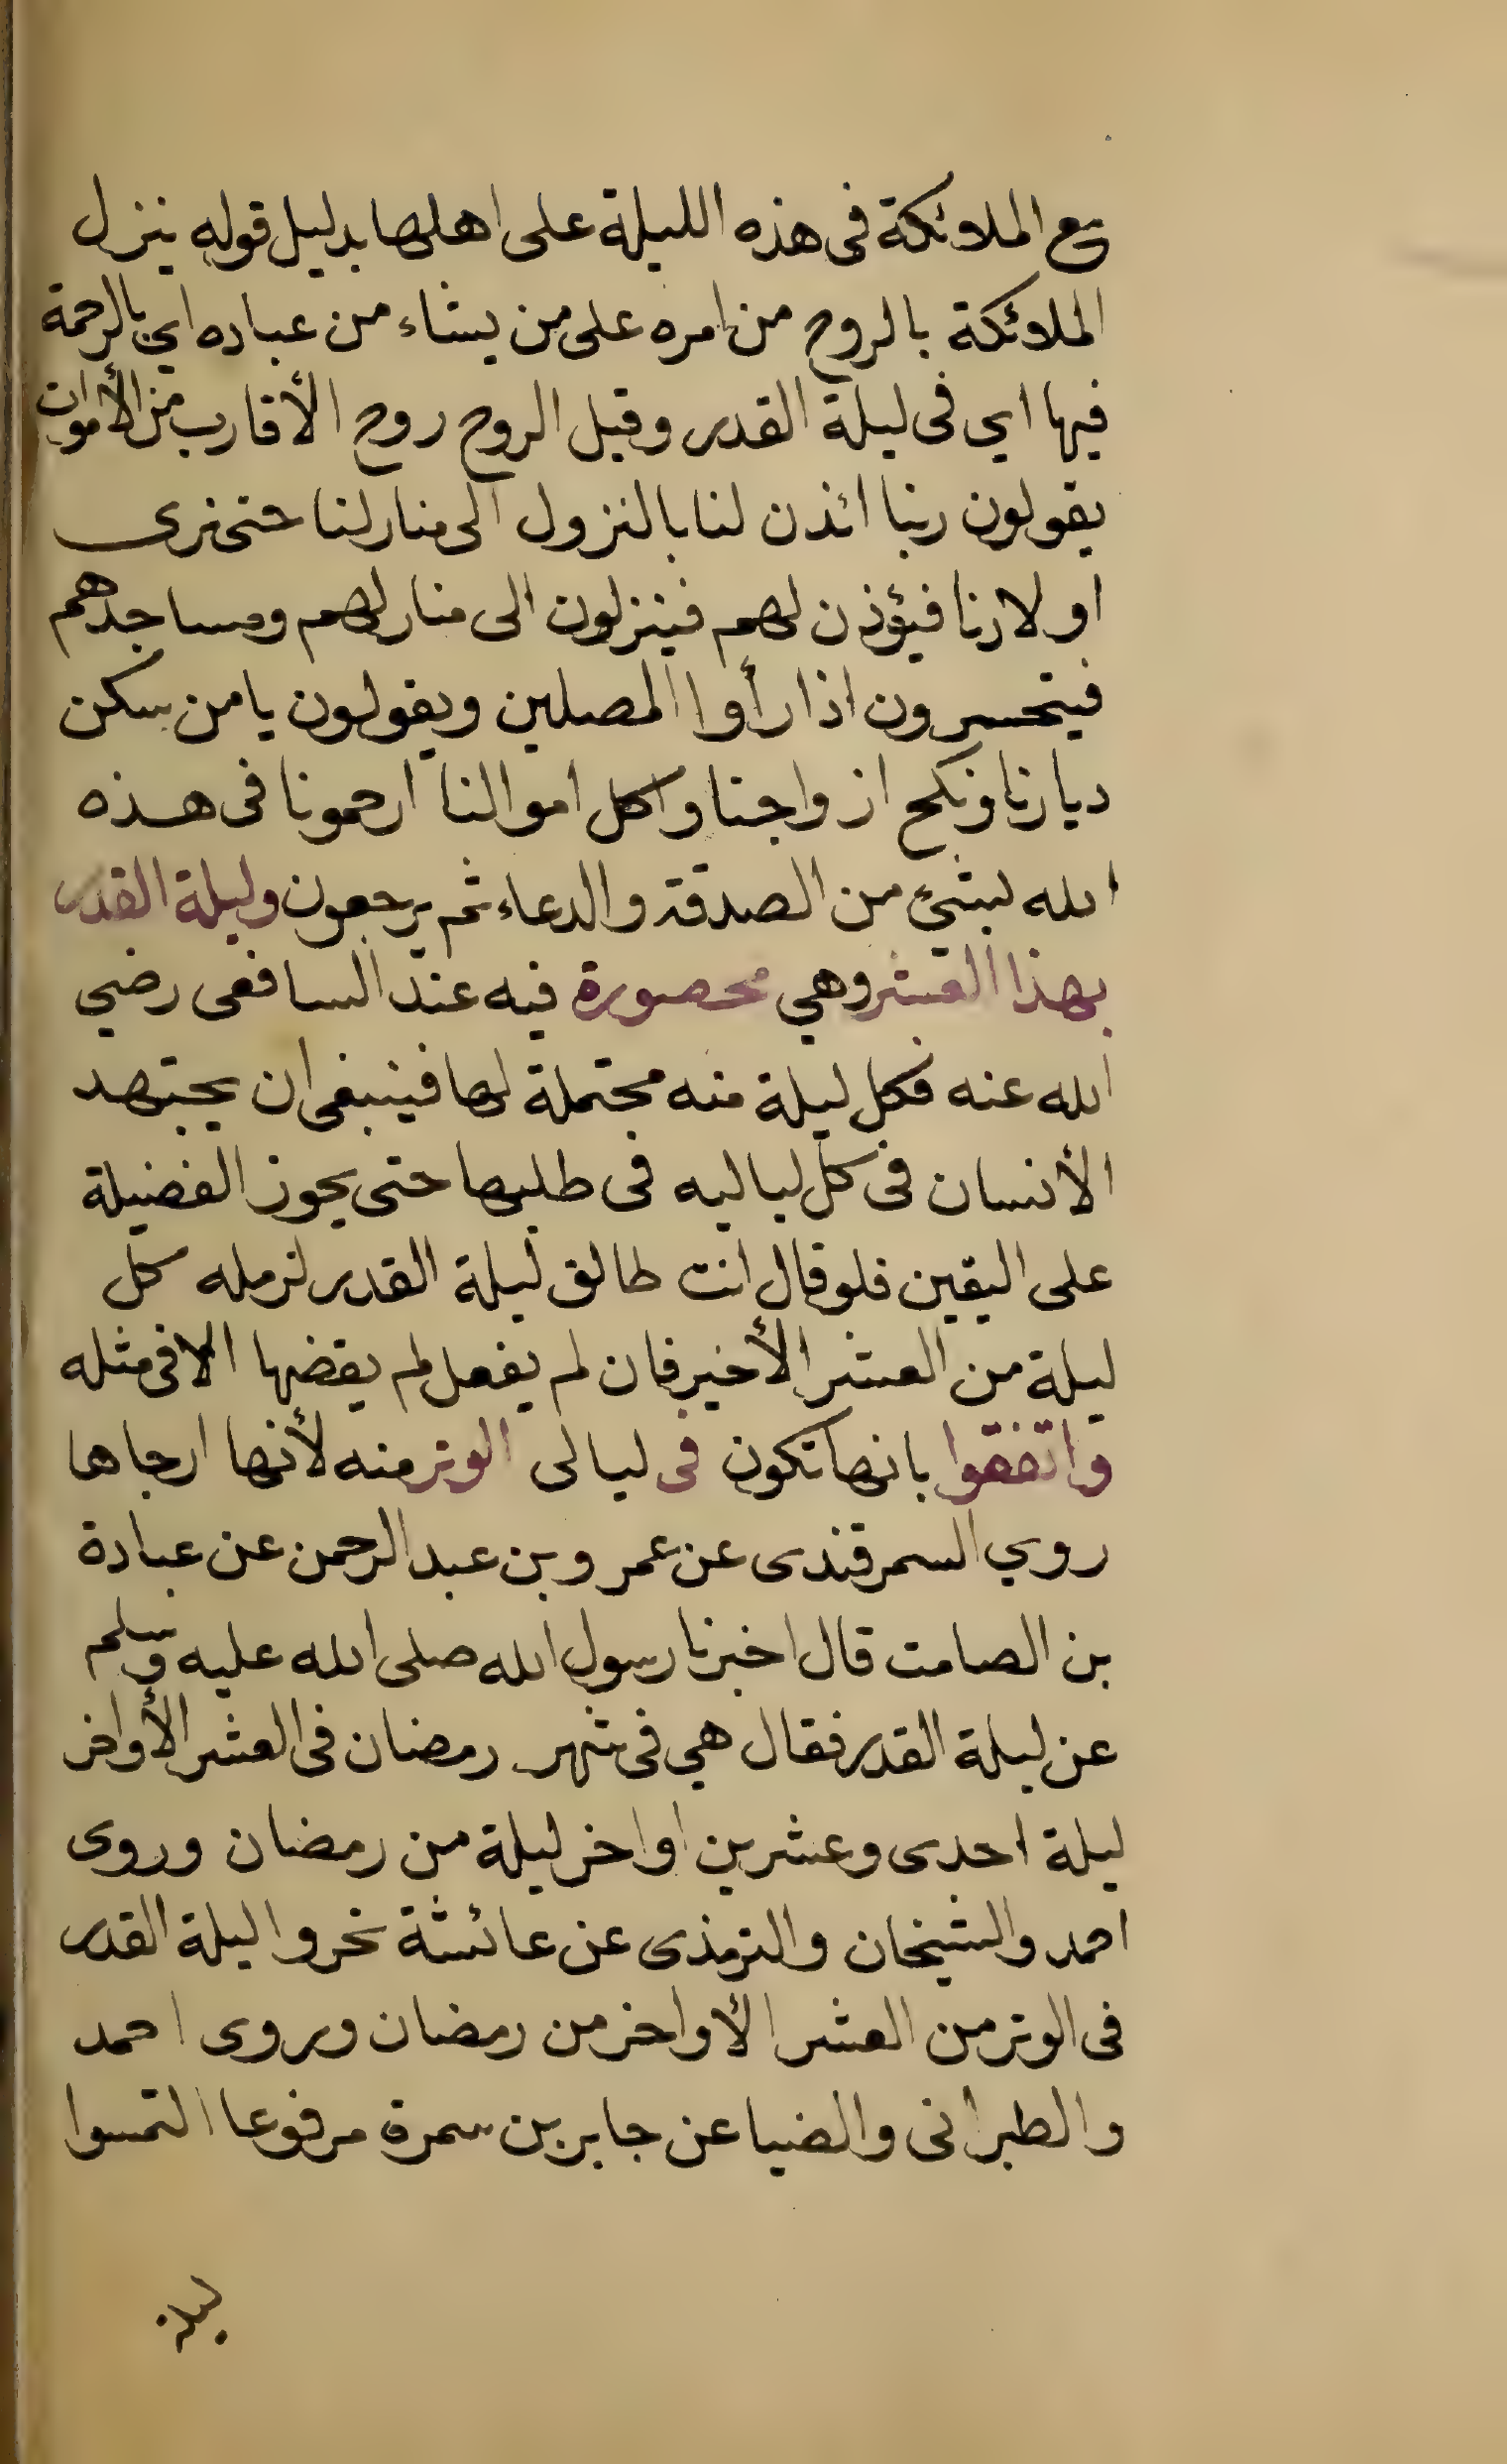 مع الملائكة فى هذه الليلة على اهلها بدليل قوله ينزل
الملائكة بالروح من امره على من يشاء من عباده اي بالرحمة
فيها اي فى ليلة القدر وقيل الروح روح الأقارب من الأموات
يقولون ربنا ائذن لنا بالنزول الى منازلنا حتى نرى
اولادنا فيؤذن لهم فينزلون الى منازلهم ومساجدهم
فيتحسرون اذا رأوا المصلين ويقولون يا من سكن
ديارنا ونكح ازواجنا واكل اموالنا ارحمونا فى هذه
الله لبشئ من الصدقة والدعاء ثم يرجعون وليلة القدر
بهذا العشر وهي محصورة فيه عند الشافعى رضي
الله عنه فكل ليلة منه محتملة لها فينبغى ان يجتهد
الأنسان فى كل لياليه فى طلبها حتى يحوز الفضيلة
على اليقين فلو قال انت طالق ليلة القدر لزمله كل
ليلة من العشر الأخير فان لم يفعل لم يقضها الا فى مثله
واتفقوا بانها تكون فى ليالى الوتر منه لأنها ارجاها
روي السمرقندى عن عمرو بن عبد الرحمن عن عبادة
بن الصامت قال اخبرنا رسول الله صلى الله عليه وسلم
عن ليلة القدر فقال هي فى شهر رمضان فى العشر الأواخر
ليلة احدى وعشرين اواخر ليلة من رمضان وروى
احمد والشيخان والترمذى عن عائشة تحروا ليلة القدر
فى الوتر من العشر الأواخر من رمضان وروى احمد
والطبرانى والضيا عن جابر بن سمرة مرفوعا التمسوا
ليلة